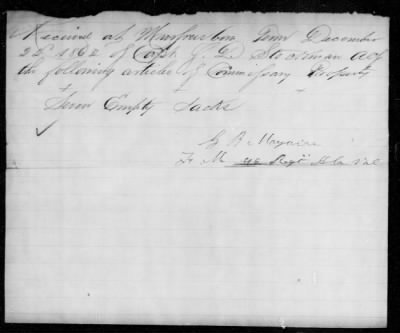 Received at Murfreesboro Tenn December
22d 1862 of Capt J. D. Stockman ACS
the following articles of Commissary Property
Seven Empty Sacks
G B Maguire
F M 48 Regt Ala Vol